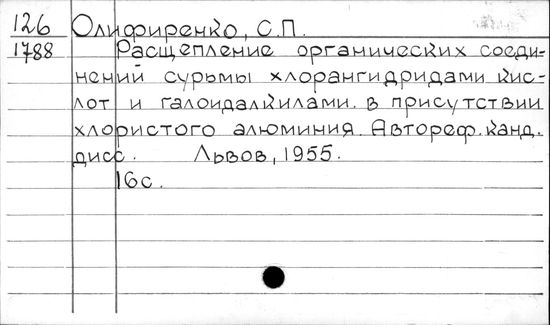 126 Олифиренко, С.П.
1788 Расщепление органических соеди-
нений сурьмы хлорангидридами кис-
лот и галоидалкилами в присутствии
хлористого алюминия. Автореф. канд.
дисс. Львов, 1955.
16с.